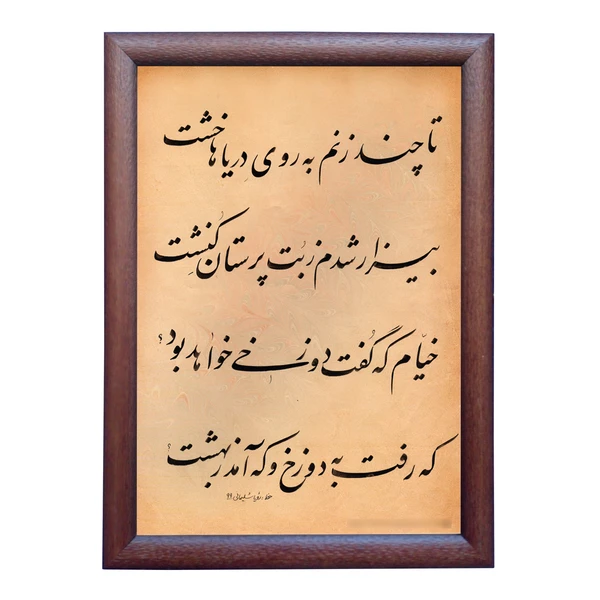 تا چند زنم به روی دریاها خشت
بیزار شدم ز بت پرستان کُنِشت
خیّام که گفت دوزخی خواهد بود؟
که رفت به دوزخ و که آمد ز بهشت؟
سلیمانی ۹۹